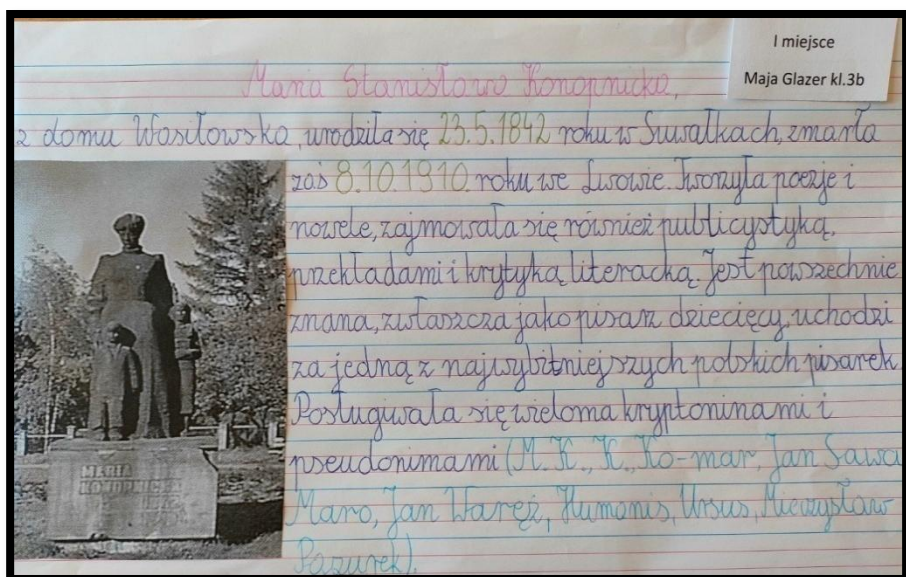 I miejsce
Maja Glazer kl.3b
Maria Stanisława Konopnicka,
z domu Wasiłowska, urodziła się 23.5.1842 roku w Suwałkach, zmarła
zaś 8.10.1910 roku we Lwowie. Tworzyła poezje i
nowele, zajmowała się również publicystyką,
przekładami i krytyką literacką. Jest powszechnie
znana, zwłaszcza jako pisarz dziecięcy, uchodzi
za jedną z najwybitniejszych polskich pisarek
Posługiwała się wieloma kryptoninami i
pseudonimami (M. K., K., Ko-mar, Jan Sawa
Maro, Jan Waręż, Humanis, Ursus, Mieczysław
Pazurek).
MARIA
KONOPNICKA